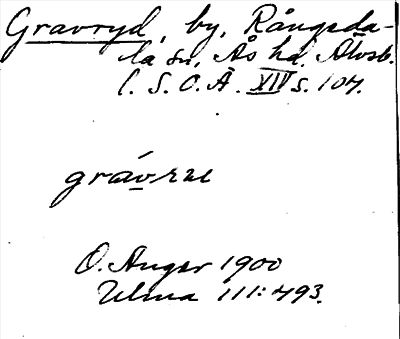 Gravryd, by, Rångeda-
la sn, Ås hd. Älvsb.
l. S.O.Ä. XIV s. 104.
O. Anger 1900
Ulma 111: 493.